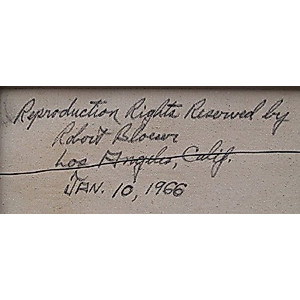 Reproduction Rights Reserved by
Robert Bloeser
Los Angeles, Calif.
JAN. 10, 1966